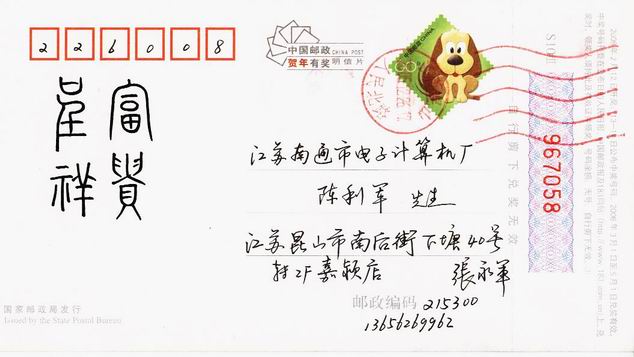 226008
中国邮政 CHINA POST
贺年有奖 明信片
中国邮政
富貴
呈祥
江苏南通市电子计算机厂
陈利军 先生
江苏昆山市南后街下塘40号
转2F嘉颖店 張永军
邮政编码 215300
13656269962
967058
自行剪下兑奖无效
国家邮政局发行
Issued by the State Postal Bureau